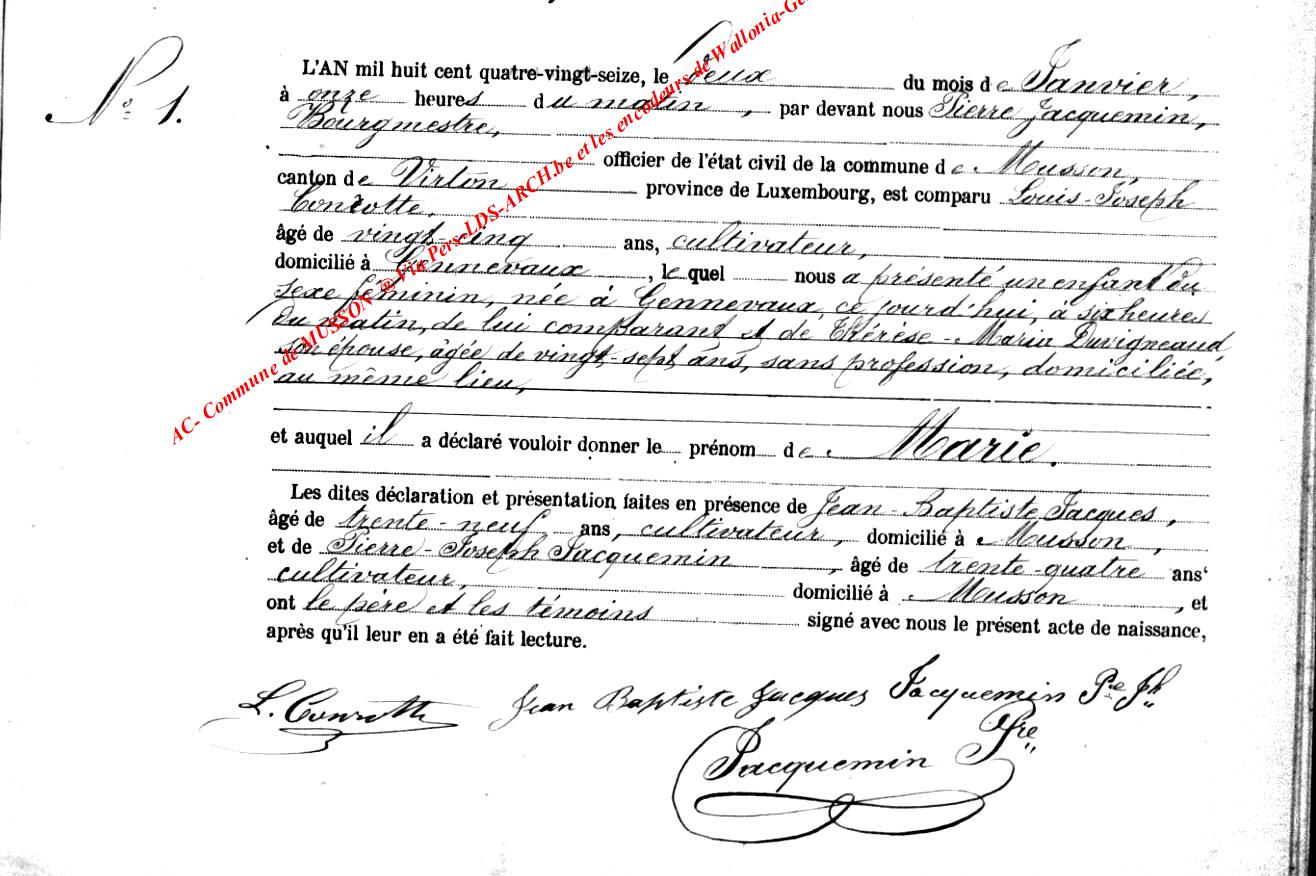 N° 1.
L'AN mil huit cent quatre-vingt-seize, le Deux du mois de Janvier,
à onze heures du matin, par devant nous Pierre Jacquemin,
Bourgmestre,
officier de l'état civil de la commune de Musson,
canton de Virton province de Luxembourg, est comparu Louis-Joseph
Conrotte,
âgé de vingt-cinq ans, cultivateur,
domicilié à Gennevaux, le quel nous a présenté un enfant du
sexe féminin, née à Gennevaux, ce jourd'hui, à six heures
du matin, de lui comparant et de Thérèse-Maria Duvigneaud,
son épouse, âgée de vingt-sept ans, sans profession, domiciliée,
au même lieu,
et auquel il a déclaré vouloir donner le prénom de Marie.
Les dites déclaration et présentation faites en présence de Jean-Baptiste Jacques,
âgé de trente-neuf ans, cultivateur, domicilié à Musson,
et de Pierre-Joseph Jacquemin, âgé de trente-quatre ans
cultivateur, domicilié à Musson, et
ont le père et les témoins signé avec nous le présent acte de naissance,
après qu'il leur en a été fait lecture.
L. Conrotte Jean Baptiste Jacques Jacquemin Pre Jh
Jacquemin Pre
AC- Commune de MUSSON @ Via Pers-LDS-ARCH.be et les encodeurs de Wallonia-Ge